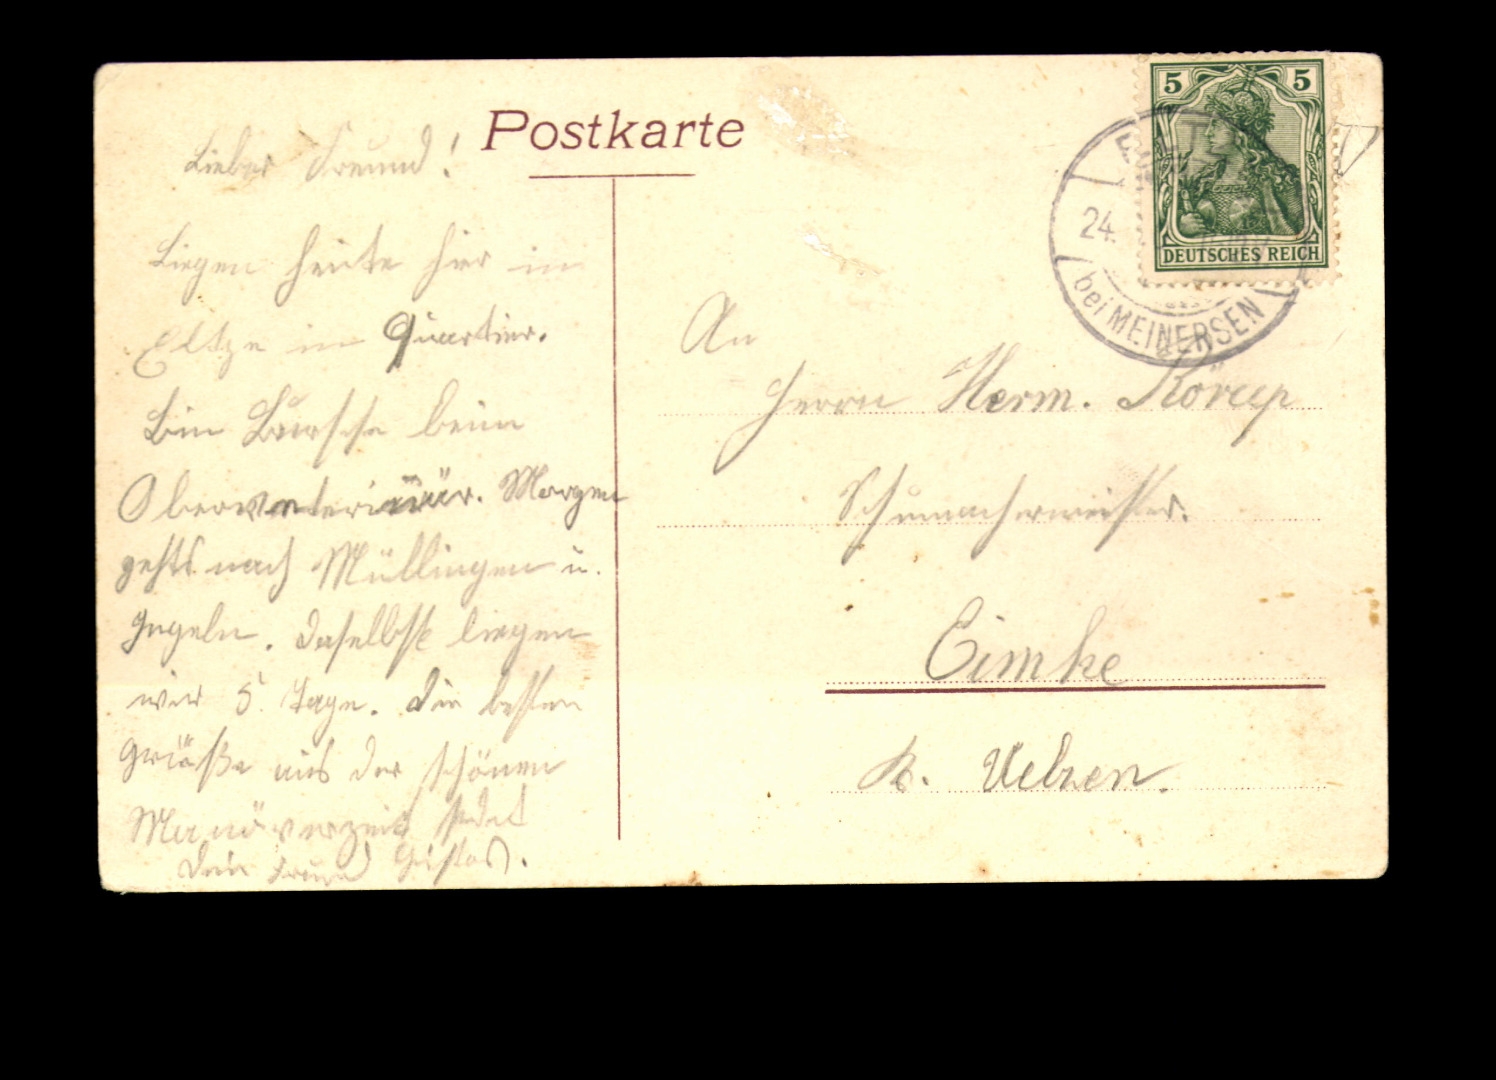 Postkarte
Lieber Freund!
Liegen heute hier in
Eltze im Quartier.
Bin Bursche beim
Oberveterinär. Morgen
gehts nach Müllingen u.
Daselbst liegen
wir 5 Tage. Die besten
Grüße aus der schönen
Manöverzeit sendet
Dein Freund Gustav.
5 5
DEUTSCHES REICH
24.
bei MEINERSEN
An
Herrn Herm. Körup
Schumachermeister.
Eimke
Kr. Uelzen.